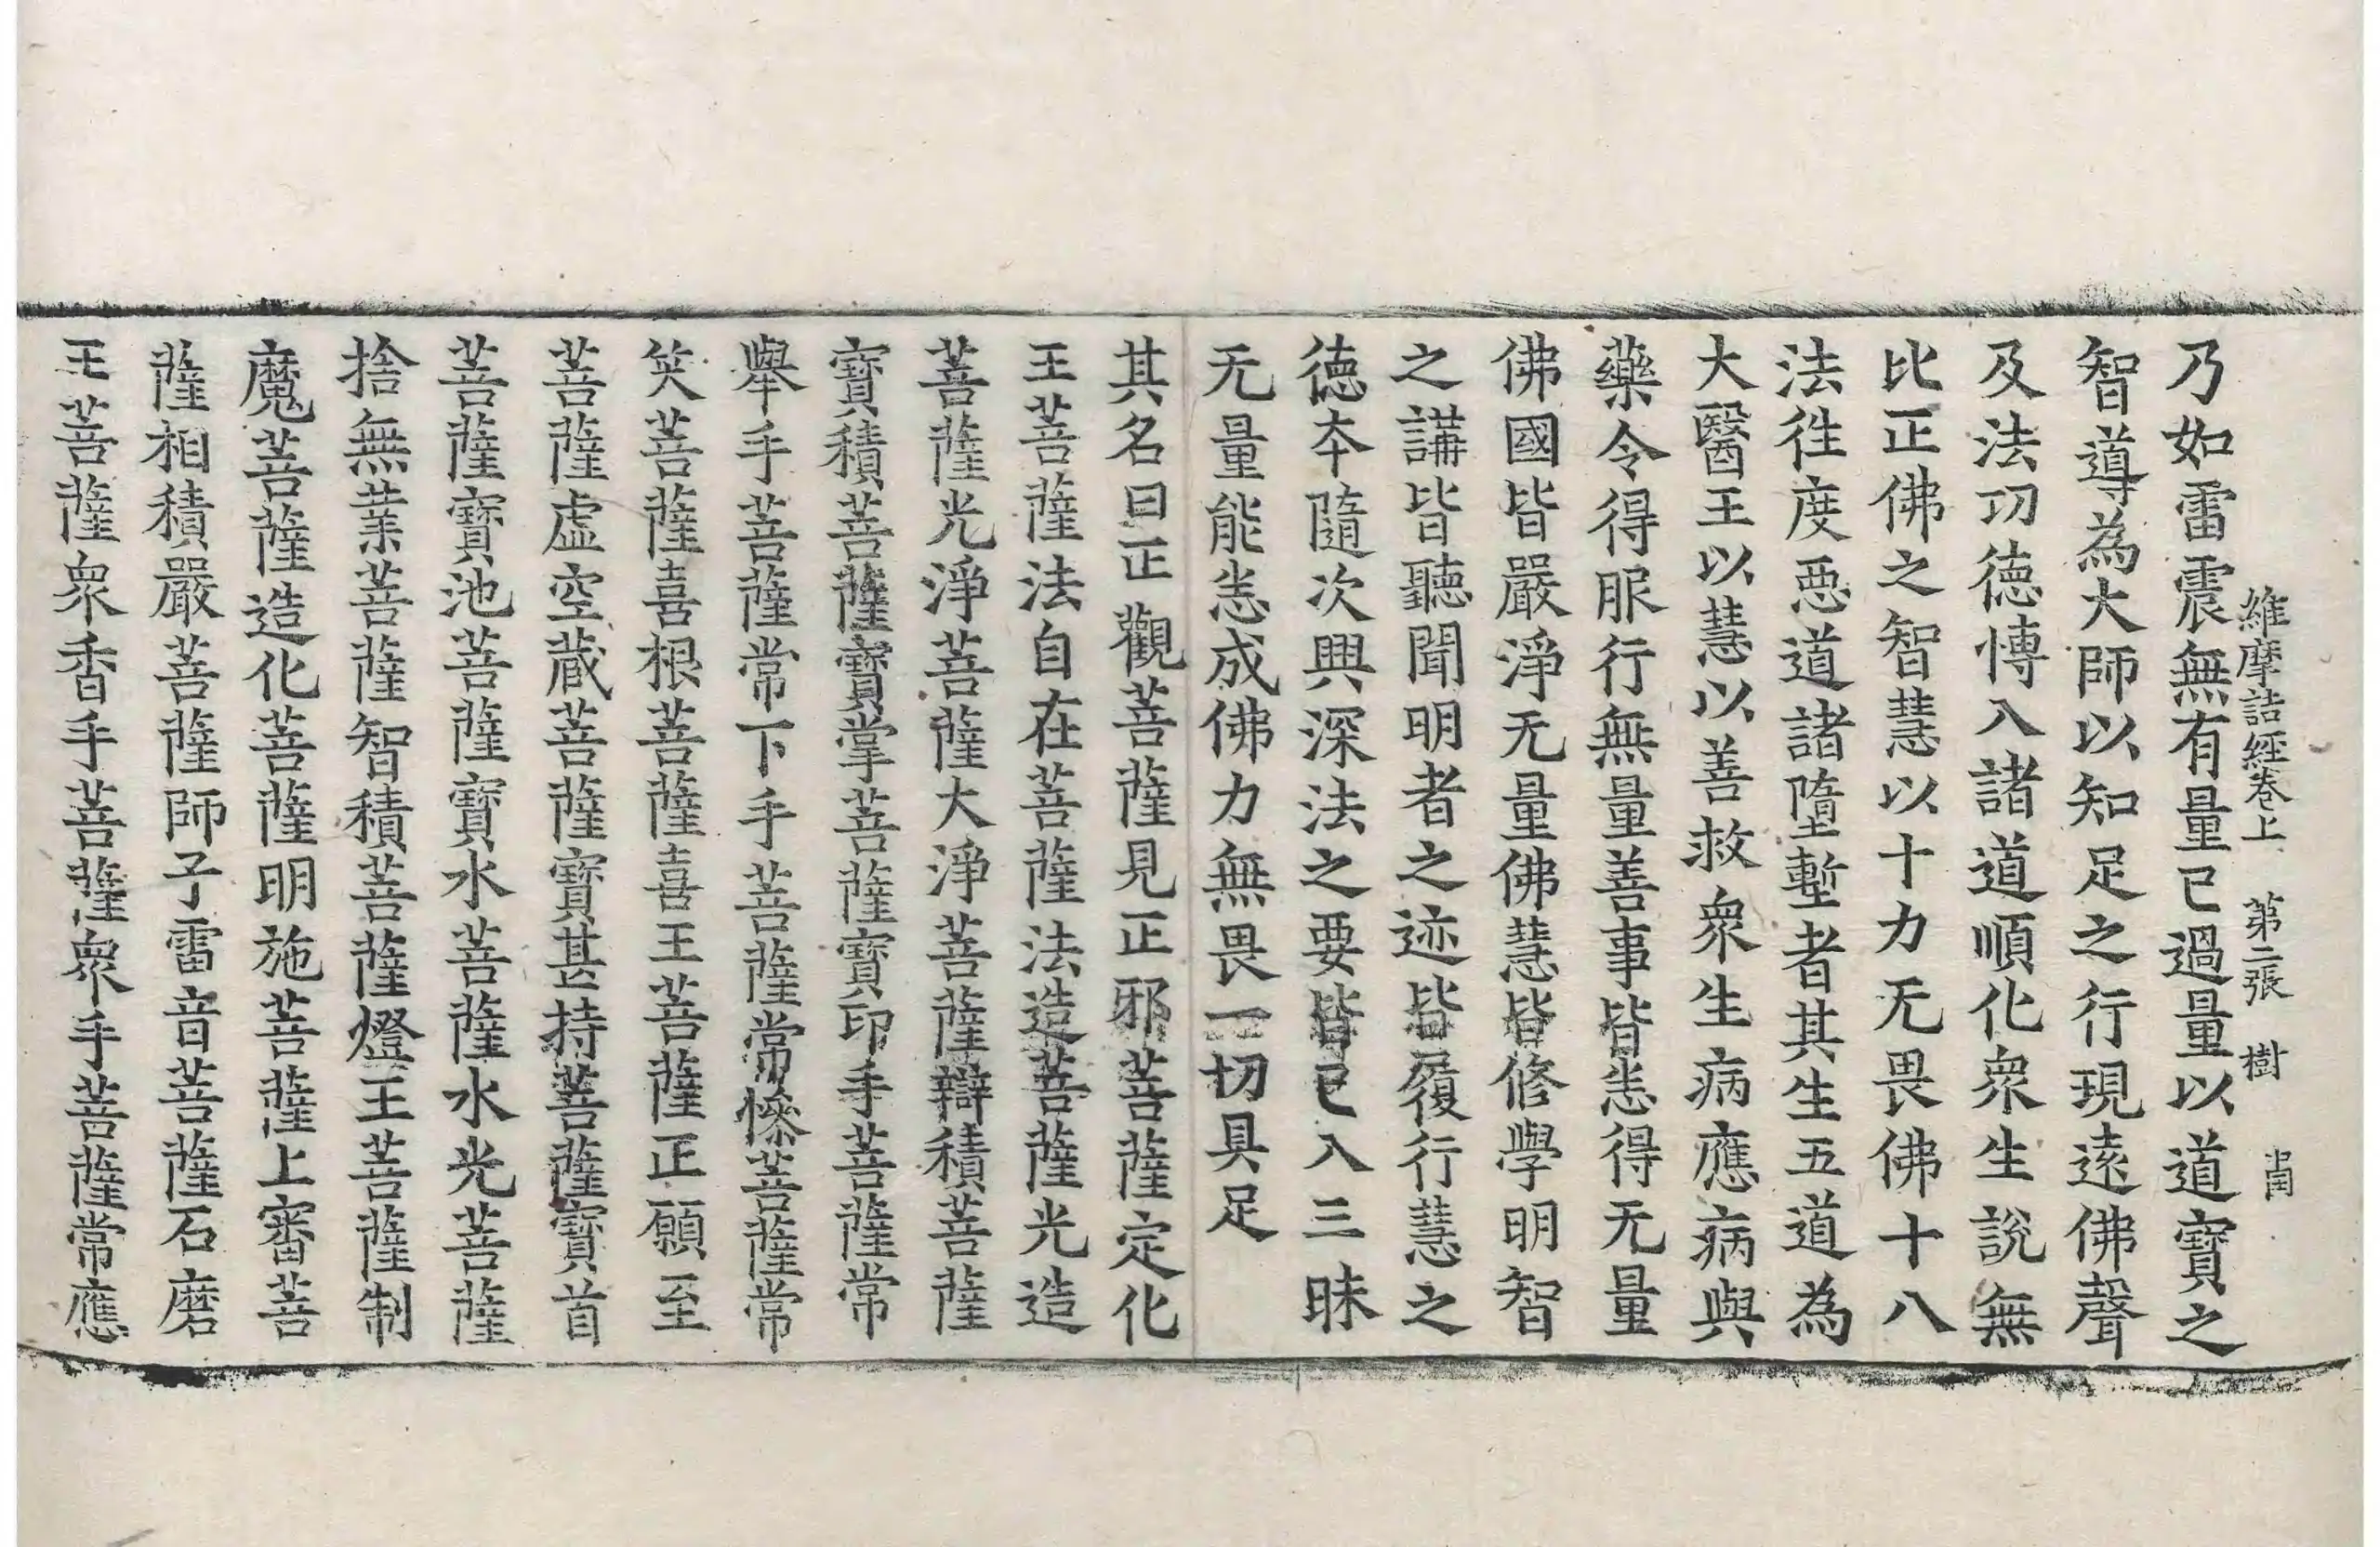 維摩詰經卷上 第二張 樹
乃如雷震無有量已過量以道寶之
智導為大師以知足之行現遠佛聲
及法㓛德愽入諸道順化衆生說無
比正佛之智慧以十力无畏佛十八
法徃度惡道諸墮壍者其生五道為
大醫王以慧以善救衆生病應病與
藥令得服行無量善事皆悉得无量
佛國皆嚴淨无量佛慧皆修學明智
之講皆聽聞明者之迹皆履行慧之
德夲隨次興深法之要皆已入三昧
无量能悉成佛力無畏一切具足
其名曰正觀菩薩見正邪菩薩定化
王菩薩法自在菩薩法造菩薩光造
菩薩光淨菩薩大淨菩薩辯積菩薩
寶積菩薩寶掌菩薩寶印手菩薩常
舉手菩薩常下手菩薩常慘菩薩常
笑菩薩喜根菩薩喜王菩薩正願至
菩薩虛空藏菩薩寶甚持菩薩寶首
菩薩寶池菩薩寶水菩薩水光菩薩
捨無業菩薩智積菩薩燈王菩薩制
魔菩薩造化菩薩明施菩薩上審菩
薩相積嚴菩薩師子雷音菩薩石磨
王菩薩衆香手菩薩衆手菩薩常應